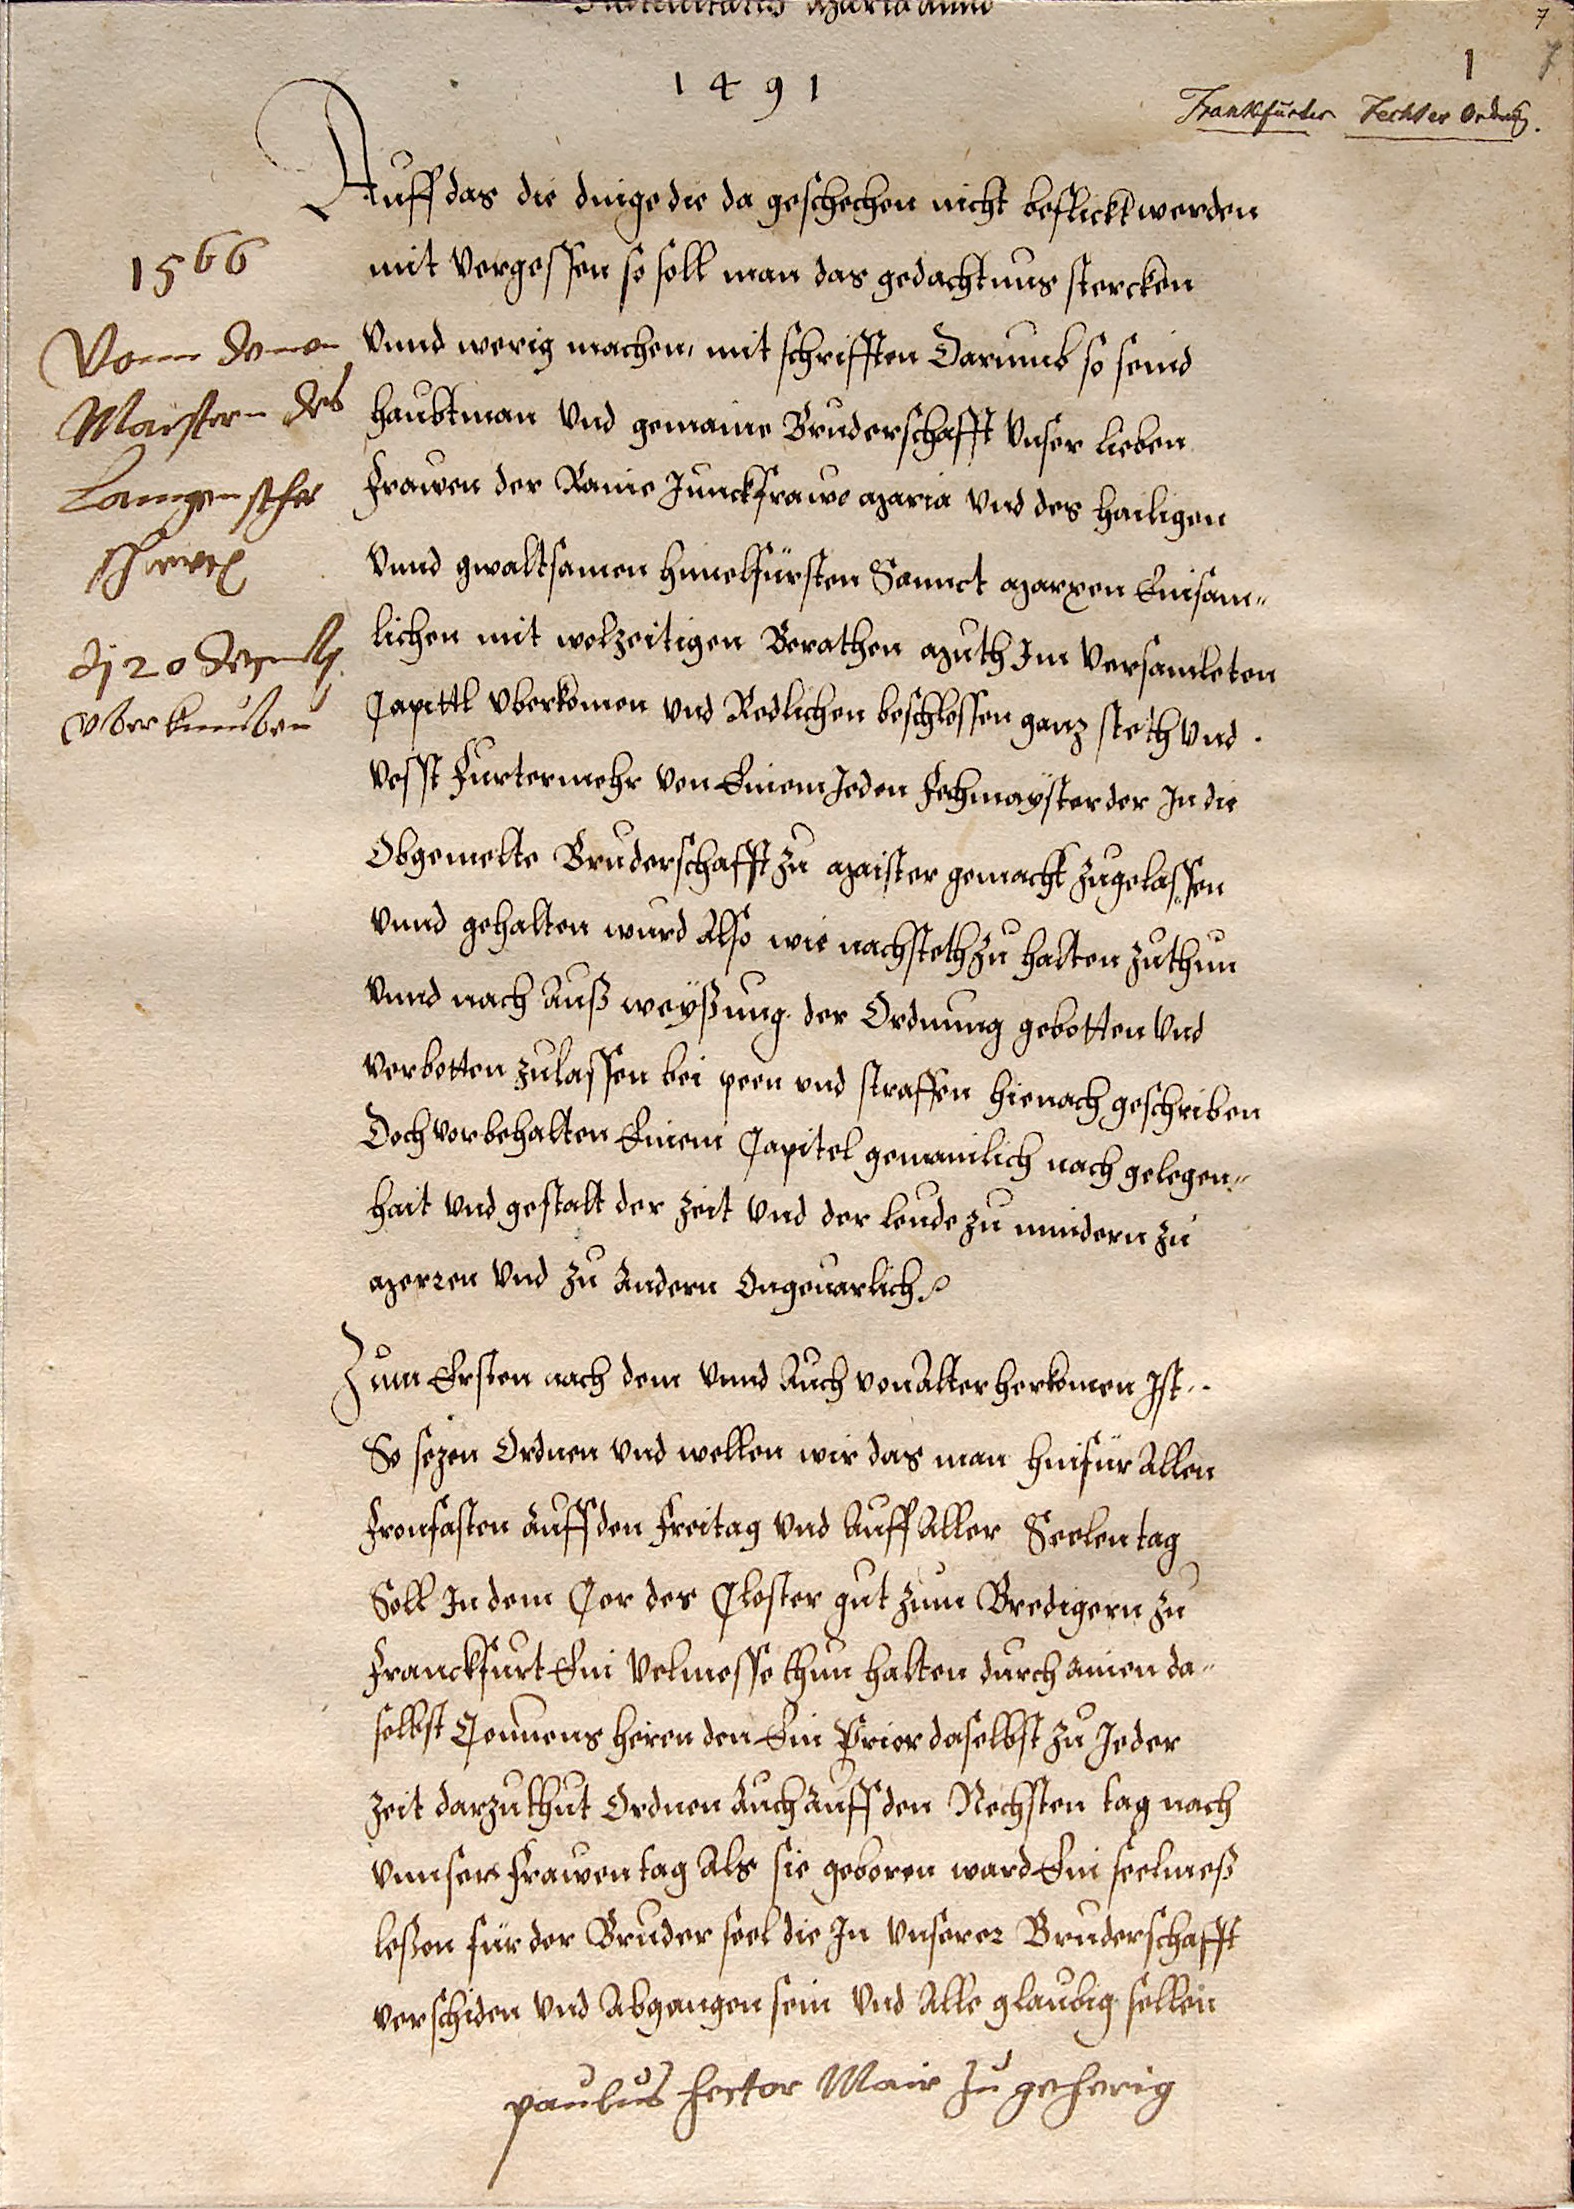 Natiuitatis Maria Anno
7
1 4 9 1
1
7
Frankfurter Fechter Ordnug.
Auff das die dinge die da geschechen nicht beflickt werden
mit vergessen so soll man das gedachtnus stercken
vnnd werig machen, mit schrifften Darumb so seind
haubtman vnd gemaine Bruderschafft vnser lieben
frawen der Raine Junckfrawe Maria vnd des hailigen
vnnd gwaltsamen himelfürsten Sannct Marxen Einsam„
lichen mit wolzeitigen Berathen Muth Im versamleten
Capittl vberkomen vnd Redlichen beschlossen ganz steth vnd
vesst Furtermehr von Einem Jeden Fechmaÿster der In die
Obgemelte Bruderschafft zu Maister gemacht zugelassen
vnnd gehalten wurd Also wie nachsteth zu halten zuthun
vnnd nach Auß weÿßung der Ordnung gebotten vnd
verbotten zulassen bei peen vnd straffen hienach geschriben
Doch vorbehalten Einem Capitel gemainlich nach gelegen„
hait vnd gestalt der zeit vnd der leude zu mindern zu
Merren vnd zu Andern Ongeuarlich
Zum Ersten nach dem vnnd Auch von Alter herkomen Ist
So sezen Ordnen vnd wellen wir das man hinfür Allen
Fronfasten Auff den Freitag vnd Auff Aller Seelen tag
Soll In dem Cor des Closter gut zum Bredigern zu
Franckfurt Ein velmesse thun halten durch ainen da„
selbst Conuens heren den Ein Prior daselbst zu Jeder
zeit darzu thut Ordnen Auch Auff den Nechsten tag nach
vnnser Frawen tag Als sie geboren ward Ein seelmeß
leßen für der Bruder seel die In vnserer Bruderschafft
verschiden vnd Abgangen sein vnd Alle glaubig sellen
1566
Vonn denen
Maistern des
Langen
schwert
dj 20
vberkumben
paulus hector Mair zu geherig